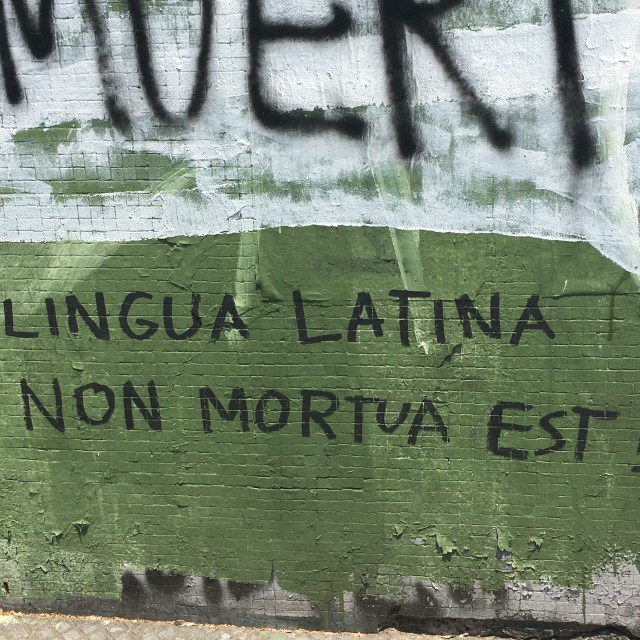 MUERT
LINGUA LATINA
NON MORTUA EST!